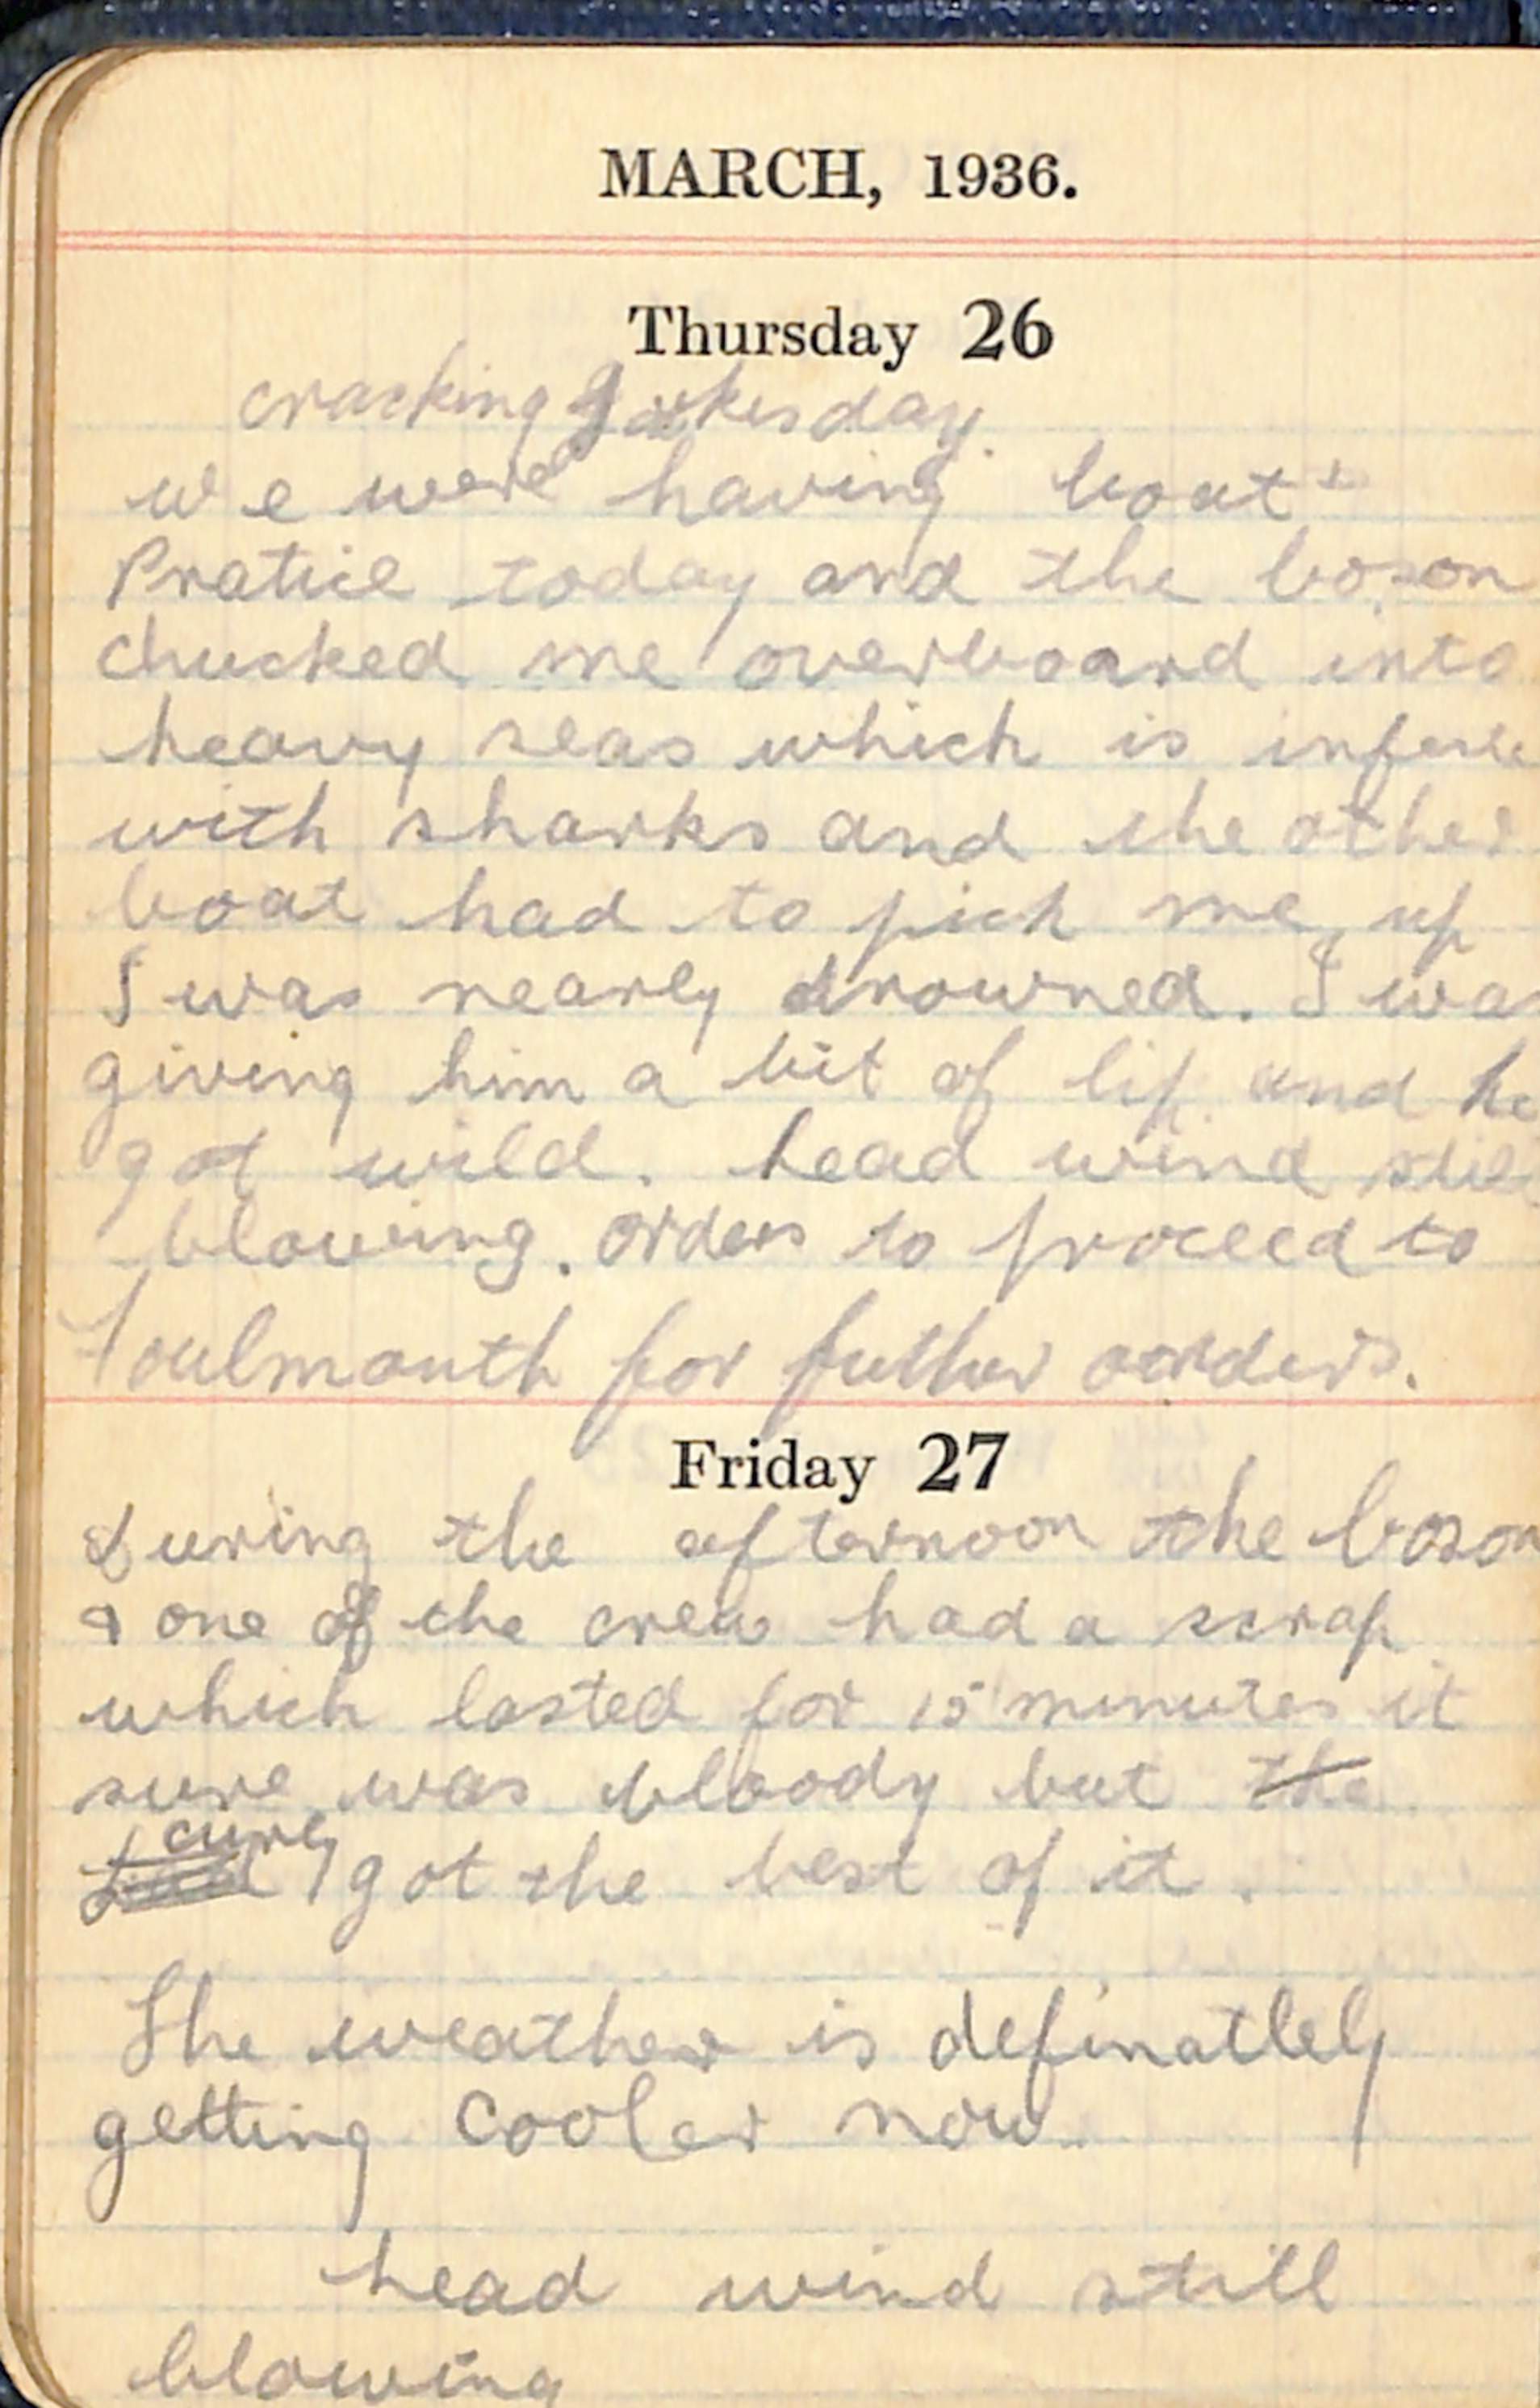 MARCH, 1936.
Thursday 26
cracking jokes day.
we were having boat
Pratice today and the boson
chucked me overboard into
heavy seas which is
with sharks and the other
boat had to pick me up
I was nearly drowned. I was
giving him a bit of lip and he
got wild. head wind still
blowing. orders to proceed to
for futher oarders.
Friday 27
during the afternoon the boson
& one of the crew had a scrap
which lasted for 15 minutes it
sure was bloody but the
curly got the best of it.
The weather is definatlely
getting cooler now.
head wind still
blowing